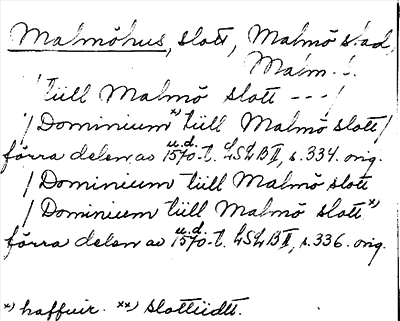 Malmöhus, slott, Malmö stad,
Malm.
/ tüll Malmö slott --- /
/ Dominium *) tüll Malmö slott /
förra delen av u.d. 1570-t. LSLB II, s. 334. orig.
/ Dominium tüll Malmö slott
/ Dominium tüll Malmö slott *)
förra delen av u.d. 1570-t. LSLB II, s. 336. orig.
*) haffuir. **) Slottüdtt.